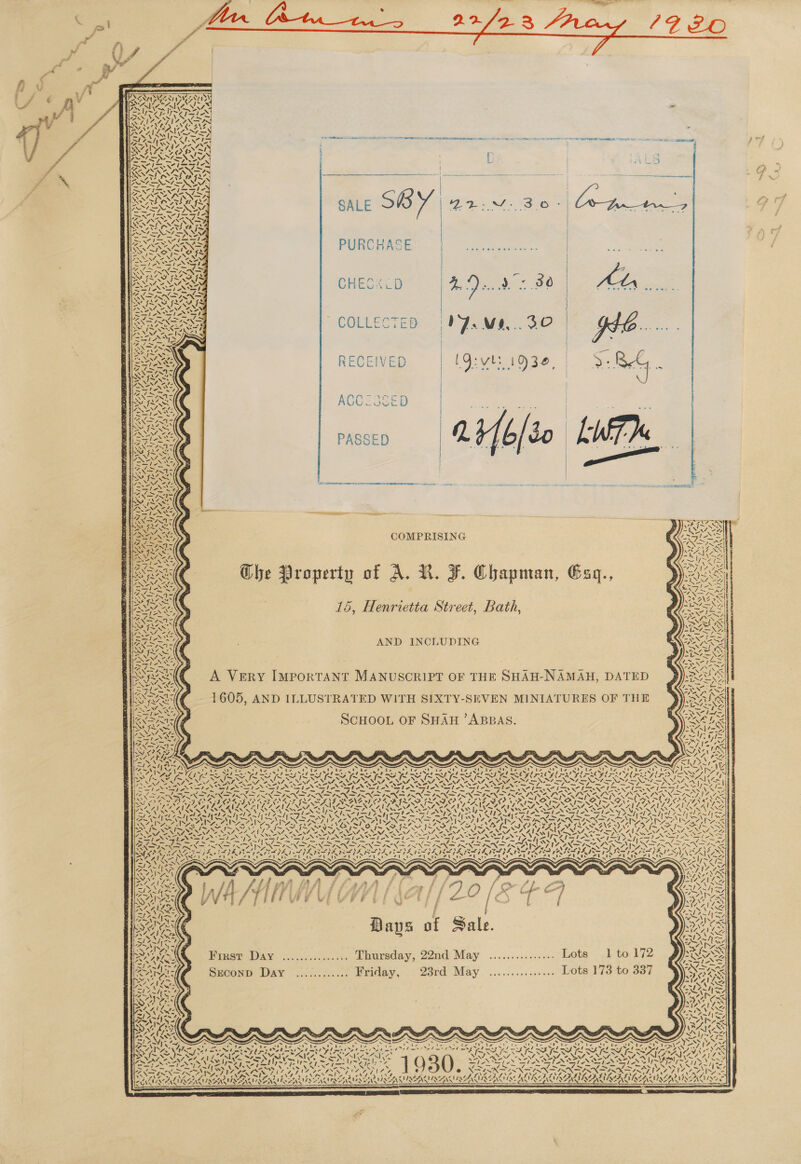 Mr Comins 22/23 May 1930
Comins'
Original
SALE SBY 22. V. 30. Comins
PURCHASE
CHECKED 30
COLLECTED 17. VI. 30
RECEIVED 19. VI. 1930.
ACCESSED
PASSED 23/6/30
93
97
307
COMPRISING
The Property of A. R. F. Chapman, Esq.,
15, Henrietta Street, Bath,
AND INCLUDING
A VERY IMPORTANT MANUSCRIPT OF THE SHĀH-NĀMAH, DATED
1605, AND ILLUSTRATED WITH SIXTY-SEVEN MINIATURES OF THE
SCHOOL OF SHĀH 'ABBAS.
WA/HMM/CM/Sal/20/849
Days of Sale.
FIRST DAY ............... Thursday, 22nd May ............... Lots 1 to 172
SECOND DAY ............ Friday, 23rd May ............... Lots 173 to 337
1930.